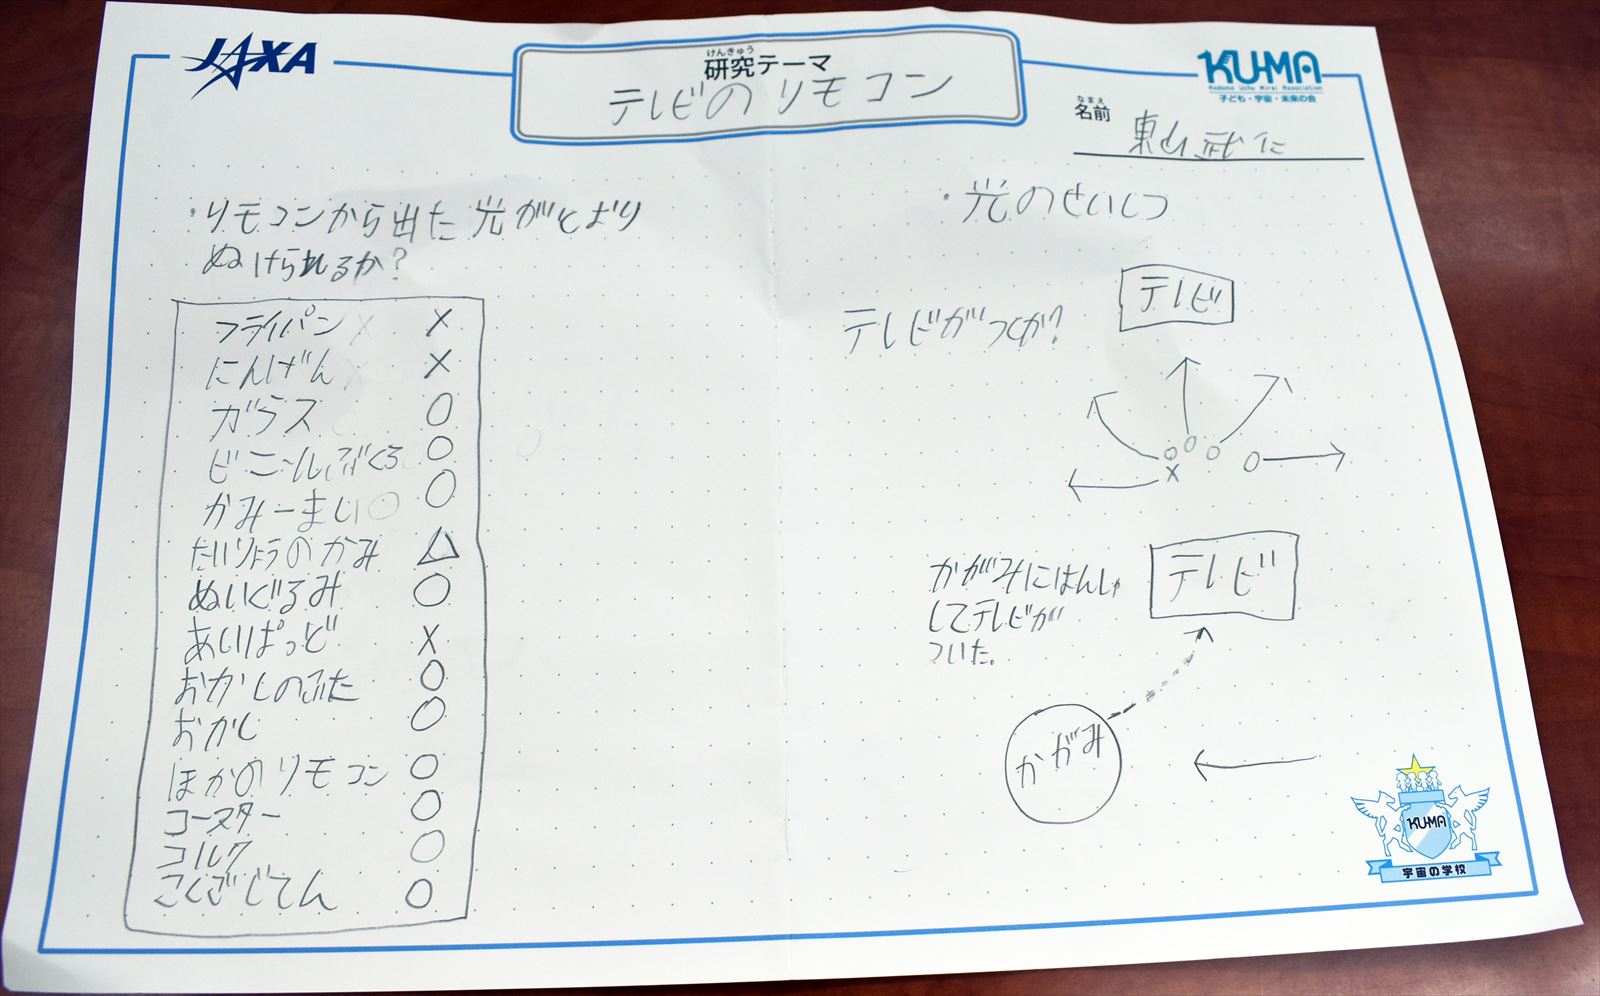 JAXA
けんきゅう
研究テーマ
テレビのリモコン
KU-MA
Kodomo Uchu Mirai Association
子ども・宇宙・未来の会
なまえ
名前
東山武仁
・リモコンから出た光がとより
ぬけられるか?
フライパン X
にんげん X
ガラス ○
ビニールぶくろ ○
かみーまい ○
たいりょうのかみ △
ぬいぐるみ ○
あいぱっど X
おかしのふた ○
おかし ○
ほかのリモコン ○
コースター ○
コルク ○
こくごじてん ○
・光のせいしつ
テレビがつくか?
テレビ
X
かがみにはんしゃ
してテレビが
ついた。
テレビ
かがみ
KU-MA
宇宙の学校